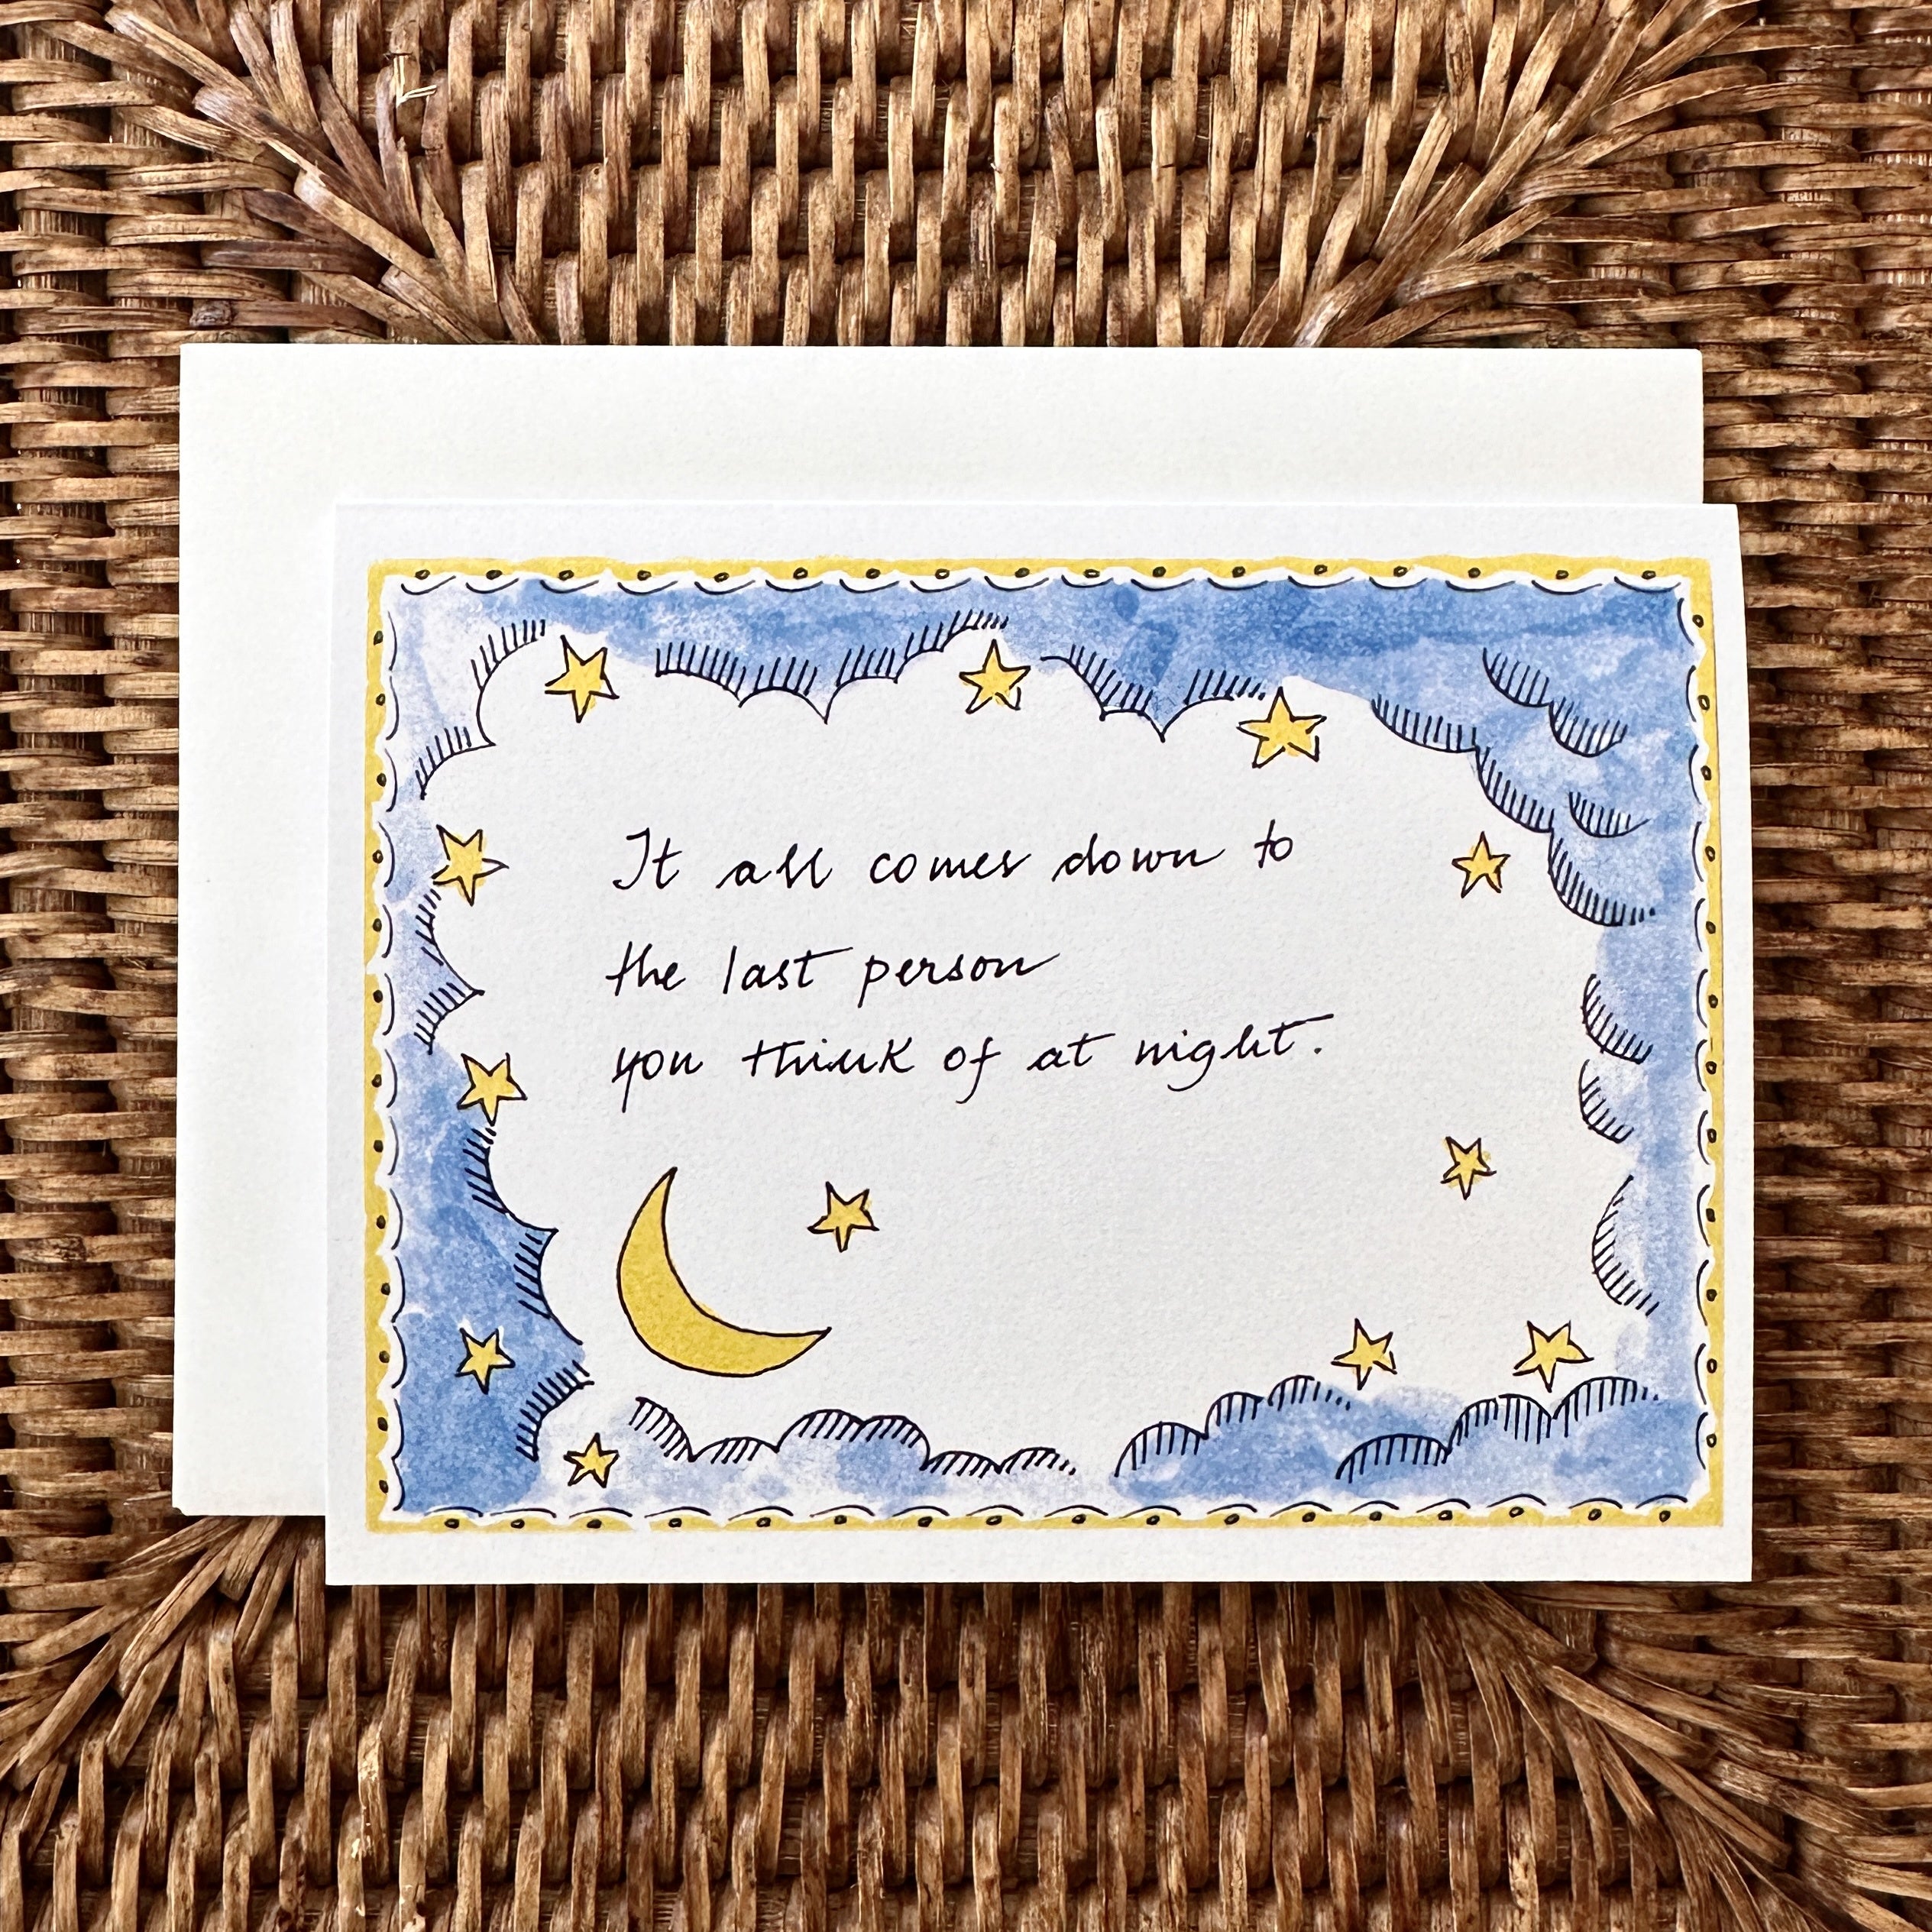 It all comes down to
the last person
you think of at night.